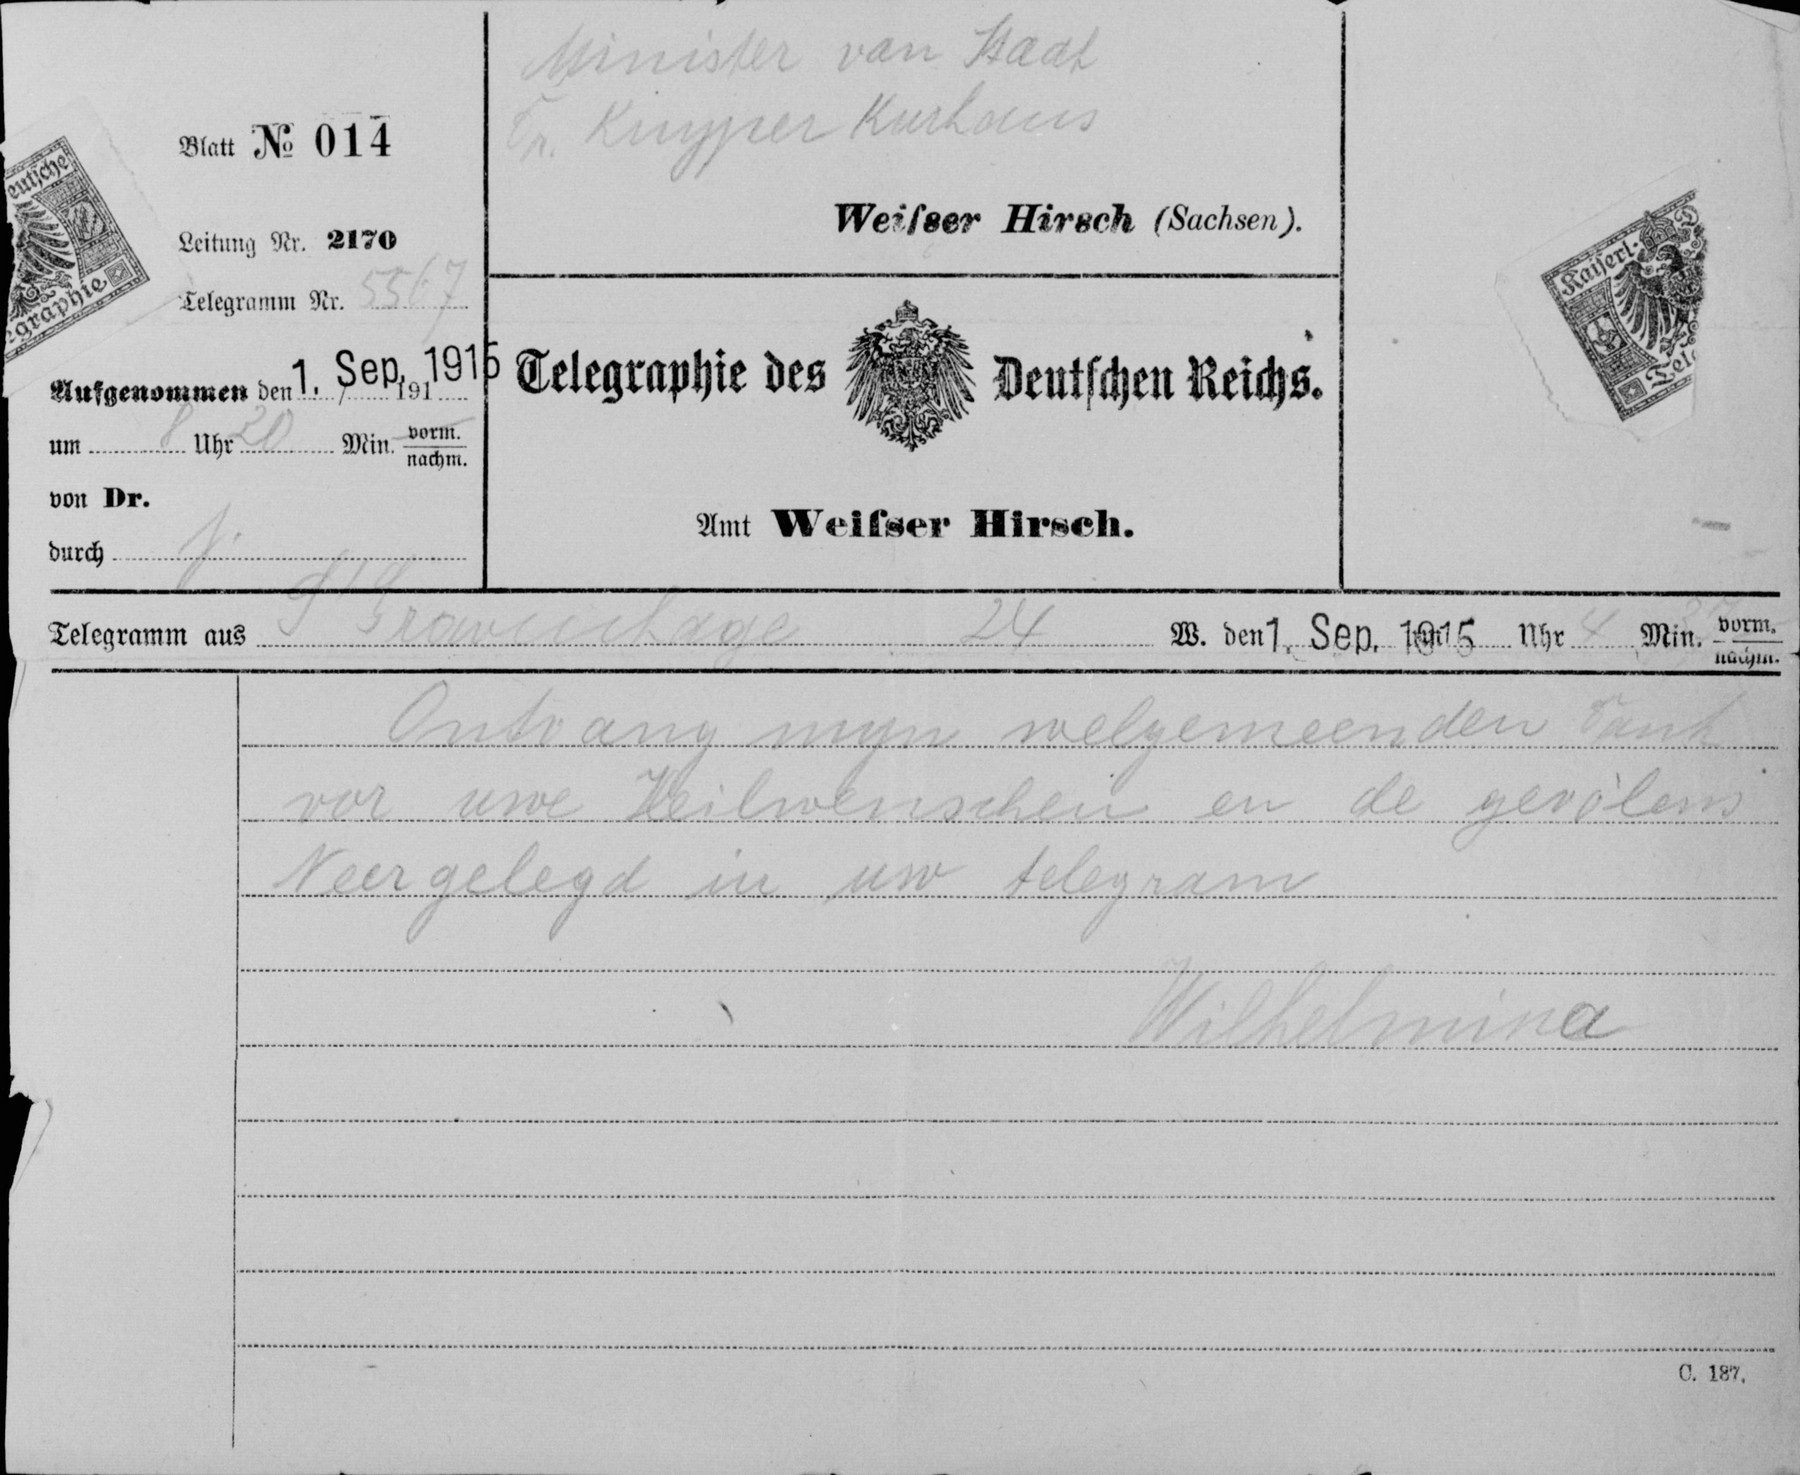 Minister van Staat
Dr. Kuyper Kurhaus
Weiſser Hirsch (Sachsen).
Blatt № 014
Leitung Nr. 2170
Telegramm Nr. 5567
Aufgenommen den 1. Sep. 1915 191
um 8 Uhr 20 Min. vorm.
nachm.
von Dr.
durch
eutsche
egraphie
Telegraphie des Deutſchen Reichs.
Amt Weiſser Hirsch.
Kaiserl. D
Tele
Telegramm aus S'Gravenhage 24 W. den 1. Sep. 1915 Uhr 4 Min. vorm.
nachm.
Ontvang myn welgemeenden Dank
vor uwe Heilwenschen en de gevölens
Neergelegd in uw telegram
Wilhelmina
C. 187.